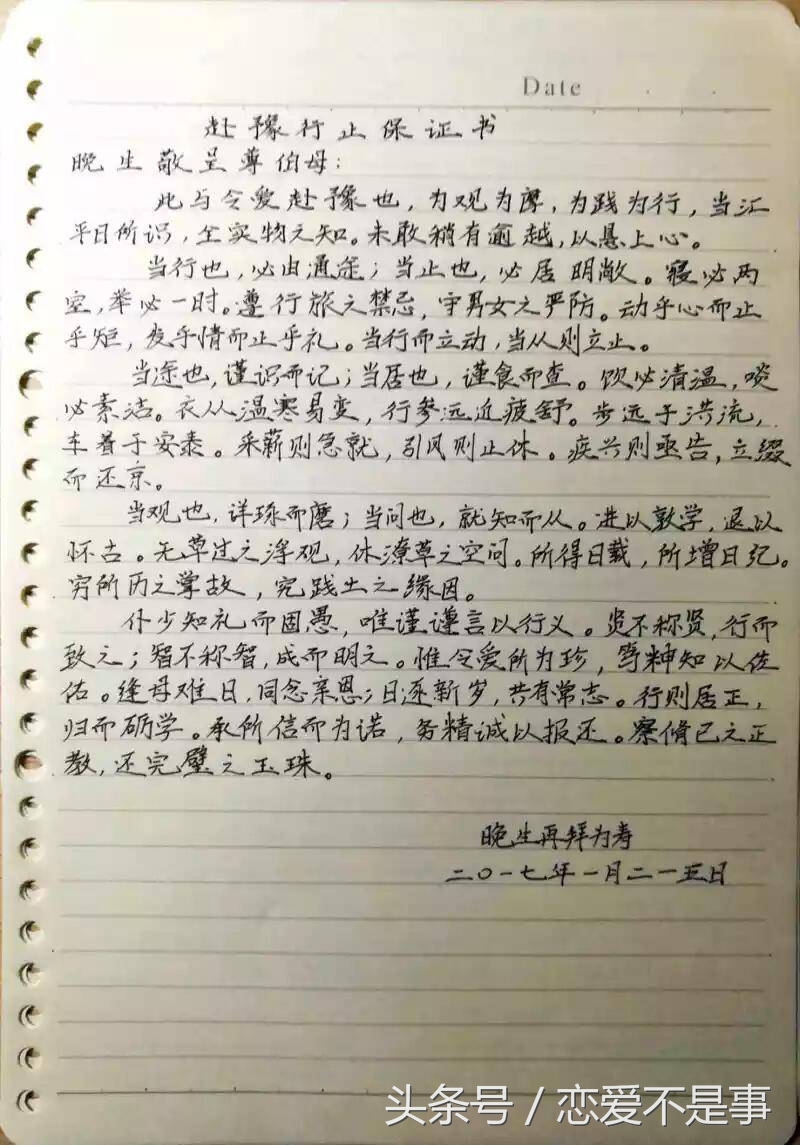 Date
赴豫行止保证书
晚生敬呈尊伯母：
此与令爱赴豫也，为观为摩，为践为行，当汇
平日所识，全实物之知。未敢稍有逾越，以悬上心。
当行也，必由通途；当止也，必居明敞。寝必两
室，举必一时。遵行旅之禁忌，守男女之严防。动乎心而止
乎矩，发乎情而止乎礼。当行而立动，当从则立止。
当途也，谨识而记；当居也，谨食而查。饮必清温，啖
必素洁。衣从温寒易变，行参远近疲舒。步远于洪流，
车着于安泰。采薪则急就，引风则止休。疾兴则亟告，立缀
而还京。
当观也，详琢而磨；当问也，就知而从。进以敦学，退以
怀古。无草过之浮观，休潦草之空问。所得日载，所增日记。
穷所历之掌故，究践土之缘因。
仆少知礼而固愚，唯谨谨言以行义。贤不称贤，行而
致之；智不称智，成而明之。惟令爱所为珍，笃神知以佐
佑。逢母难日，同念亲恩；日逐新岁，共有常志。行则居正，
归而砺学。承所信而为诺，务精诚以报还。察脩已之正
教，还完璧之玉珠。
晚生再拜为寿
二〇一七年一月二一五日
头条号／恋爱不是事